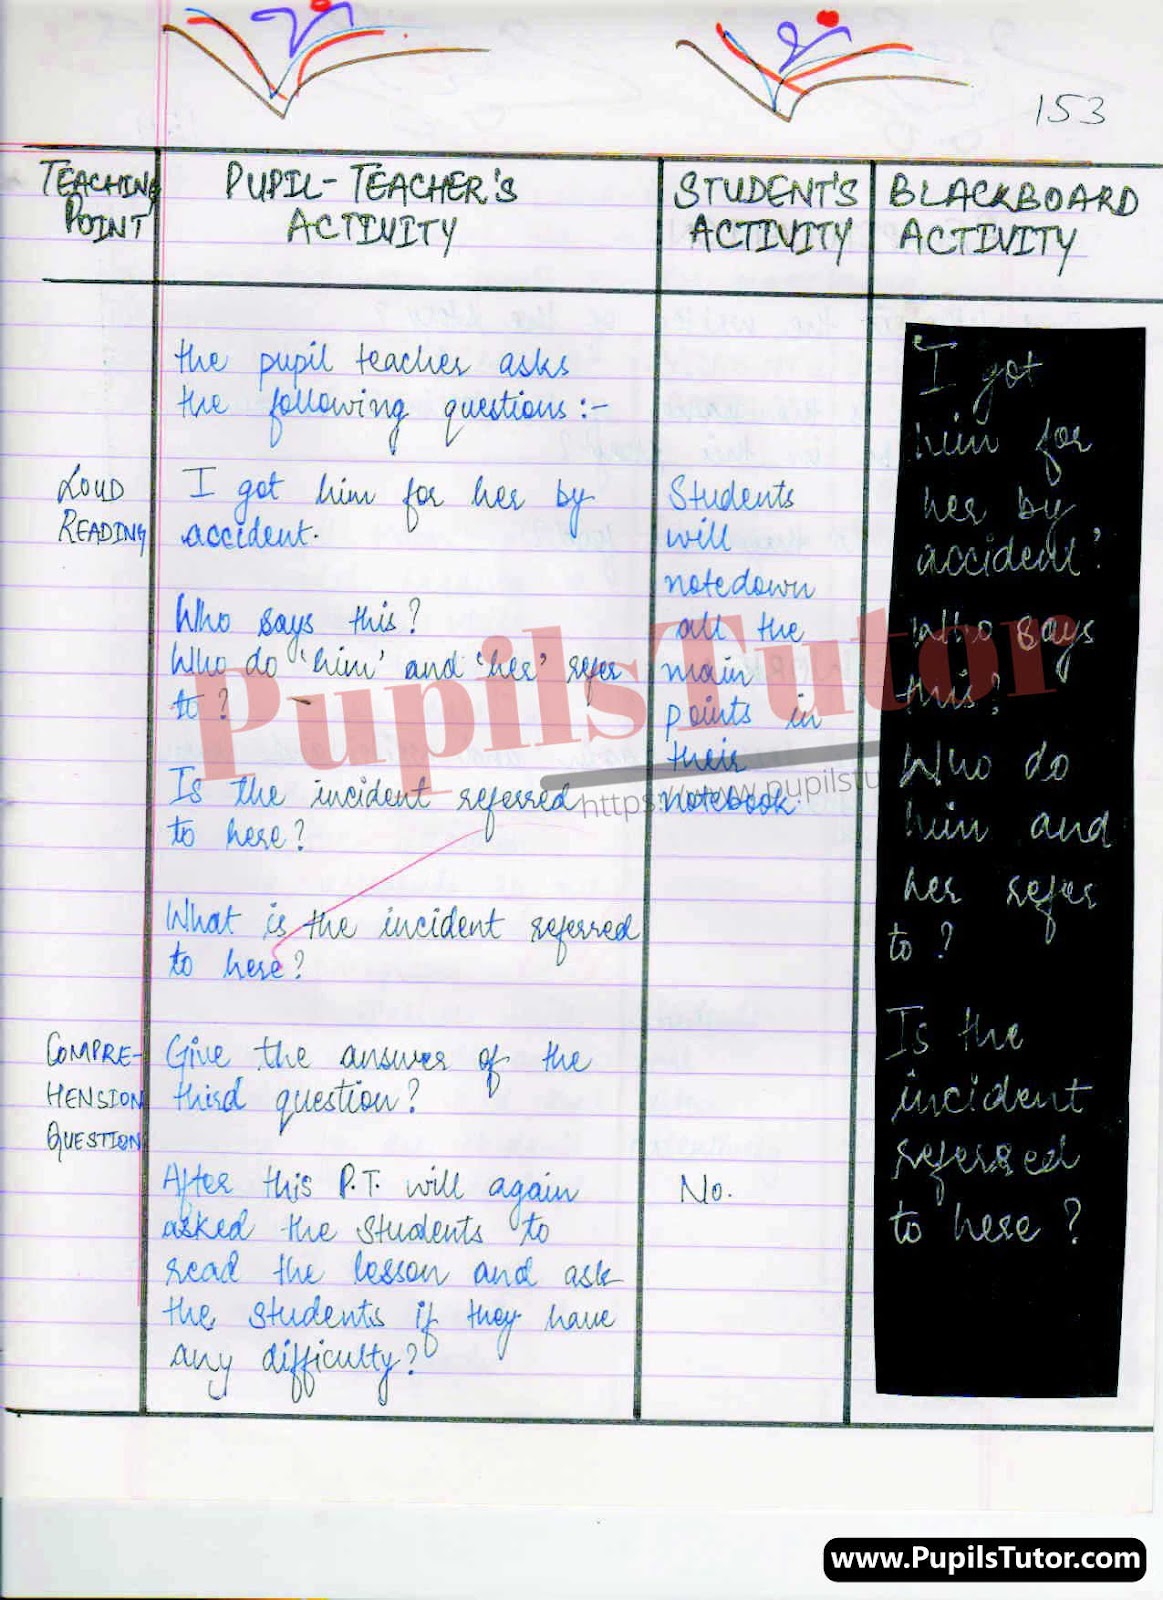 153
TEACHING
POINT
PUPIL-TEACHER'S
ACTIVITY
STUDENT'S
ACTIVITY
BLACKBOARD
ACTIVITY
the pupil teacher asks
the following questions:-
LOUD
READING
I got him for her by
accident.
Who says this?
Who do 'him' and 'her' refer
to?
Is the incident referred
to here?
What is the incident referred
to here?
COMPRE-
HENSION
QUESTION
Give the answer of the
third question?
After this P.T. will again
asked the students to
read the lesson and ask
the students if they have
any difficulty?
Students
will
notedown
all the
main
points in
their
notebook.
No.
I got
him for
her by
accident'
Who says
this?
Who do
him and
her refer
to?
Is the
incident
referred
to here?
PupilsTutor
https://www.pupilstu
www.PupilsTutor.com